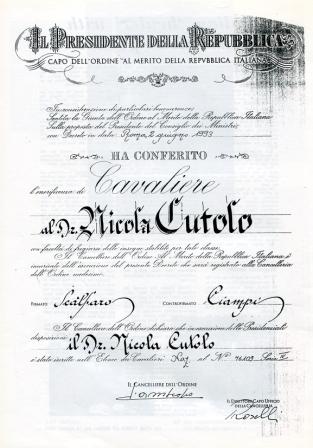 IL PRESIDENTE DELLA REPUBBLICA
CAPO DELL'ORDINE "AL MERITO DELLA REPVBBLICA ITALIANA"
In considerazione di particolari benemerenze;
Sentita la Giunta dell'Ordine al Merito della Repubblica Italiana
Sulla proposta del Presidente del Consiglio dei Ministri;
con Decreto in data: Roma, 2 giugno 1993
HA CONFERITO
l'onorificenza di Cavaliere
al Dr. Nicola Cutolo
con facoltà di fregiarsi delle insegne stabilite per tale classe.
Il Cancelliere dell'Ordine Al Merito della Repubblica Italiana, è
incaricato dell'esecuzione del presente Decreto che sarà registrato alla Cancelleria
dell'Ordine medesimo.
FIRMATO Scalfaro CONTROFIRMATO Ciampi
Il Cancelliere dell'Ordine dichiara che in esecuzione delle Presidenziali
disposizioni il Dr. Nicola Cutolo
è stato iscritto nell'Elenco dei Cavalieri Naz. al N°
IL CANCELLIERE DELL'ORDINE
IL DIRETTORE CAPO UFFICIO
DELLA CANCELLERIA